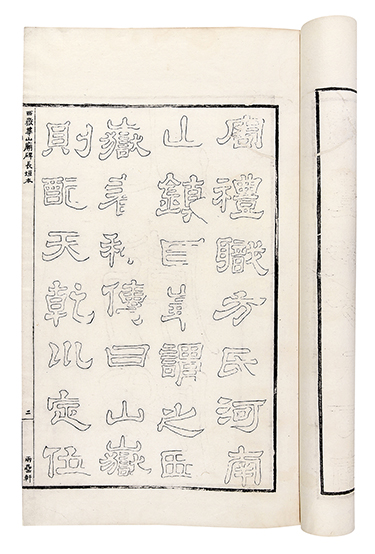 周禮職方氏河南
山鎮曰華謂之西
嶽春秋傳曰山嶽
則配天乾巛定位
西嶽華山廟碑長垣本
二
兩罍軒